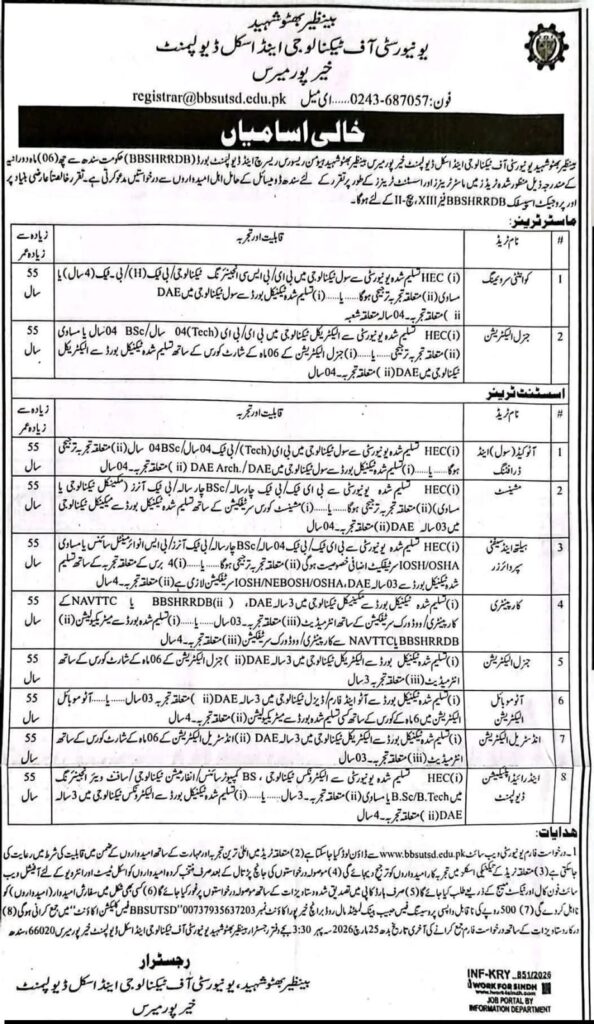 بینظیر بھٹو شہید
یونیورسٹی آف ٹیکنالوجی اینڈ اسکل ڈیولپمنٹ
خیرپور میرس
فون: 0243-687057......ای میل registrar@bbsutsd.edu.pk
خالی اسامیاں
بینظیر بھٹو شہید یونیورسٹی آف ٹیکنالوجی اینڈ اسکل ڈیولپمنٹ خیرپور میرس بینظیر بھٹو شہید ہیومن ریسورس ریسرچ اینڈ ڈیولپمنٹ بورڈ (BBSHRRDB) حکومت سندھ سے چھ (06) ماہ دورانیہ
کے مندرجہ ذیل منظور شدہ ٹریڈز میں ماسٹر ٹرینرز اور اسسٹنٹ ٹرینرز کے طور پر تقرر کے لئے سندھ ڈومیسائل کے حامل اہل امیدواروں سے درخواستیں مدعو کرتی ہے۔ تقرر خالصتاً عارضی بنیاد پر
اور پروجیکٹ اسپیسفک BBSHRRDB فیز XIII، بیچ-II کے لئے ہوگا۔
ماسٹر ٹرینر:
# نام ٹریڈ قابلیت اور تجربہ زیادہ سے زیادہ عمر
1 کوانٹٹی سرویئنگ HEC (i) تسلیم شدہ یونیورسٹی سے سول ٹیکنالوجی میں بی ای/بی ایس سی انجینئرنگ ٹیکنالوجی/بی ٹیک (H)/بی۔ٹیک (4 سال) یا 55 سال
مساوی (ii) متعلقہ تجربہ ترجیحی ہوگا.....یا.....(i) تسلیم شدہ ٹیکنیکل بورڈ سے سول ٹیکنالوجی میں DAE
ii) متعلقہ تجربہ۔ 04 سالہ متعلقہ شعبہ
2 جنرل الیکٹریشن HEC (i) تسلیم شدہ یونیورسٹی سے الیکٹریکل ٹیکنالوجی میں بی ای/بی ای (Tech) 04 سال/BSc 04 سال یا مساوی 55 سال
ii) متعلقہ تجربہ ترجیحی.....یا.....(i) جنرل الیکٹریشن کے 06 ماہ کے شارٹ کورس کے ساتھ تسلیم شدہ ٹیکنیکل بورڈ سے الیکٹریکل
ٹیکنالوجی میں DAE (ii) متعلقہ تجربہ۔ 04 سال
اسسٹنٹ ٹرینر
# نام ٹریڈ قابلیت اور تجربہ زیادہ سے زیادہ عمر
1 آٹوکیڈ (سول) اینڈ ڈرافٹنگ HEC (i) تسلیم شدہ یونیورسٹی سے سول ٹیکنالوجی میں بی ای (Tech)/بی ٹیک 04 سال/BSc 04 سال (ii) متعلقہ تجربہ ترجیحی 55 سال
ہوگا.....یا.....(i) تسلیم شدہ ٹیکنیکل بورڈ سے سول ٹیکنالوجی میں DAE/DAE Arch. (ii) متعلقہ تجربہ۔ 04 سال
2 مشینسٹ HEC (i) تسلیم شدہ یونیورسٹی سے بی ای ٹیک/بی ٹیک چار سالہ/BSc چار سالہ/بی ٹیک آنرز (مکینیکل ٹیکنالوجی یا 55 سال
مساوی) (ii) متعلقہ تجربہ ترجیحی ہوگا.....یا.....(i) مشینسٹ کورس سرٹیفکیشن کے ساتھ تسلیم شدہ ٹیکنیکل بورڈ سے مکینیکل ٹیکنالوجی
میں 03 سالہ DAE (ii) متعلقہ تجربہ۔ 04 سال
3 ہیلتھ اینڈ سیفٹی سپروائزر HEC (i) تسلیم شدہ یونیورسٹی سے بی ای ٹیک/بی ٹیک 04 سالہ/BSc چار سالہ/بی ٹیک آنرز/بی ایس انوائرمینٹل سائنس یا مساوی 55 سال
IOSH/OSHA سرٹیفکیٹ اضافی خصوصیت ہوگی (ii) متعلقہ تجربہ ترجیحی ہوگا.....یا.....(i) 4 برس کے متعلقہ تجربہ کے ساتھ تسلیم
شدہ ٹیکنیکل بورڈ سے 03 سالہ DAE، IOSH/NEBOSH/OSHA سرٹیفکیشن لازمی ہے (ii) متعلقہ تجربہ۔ 4 سال
4 کارپینٹری (i) تسلیم شدہ ٹیکنیکل بورڈ سے مکینیکل ٹیکنالوجی میں 3 سالہ DAE، (ii) BBSHRRDB یا NAVTTC کے 55 سال
کارپینٹری/ووڈ ورک سرٹیفکیشن کے ساتھ انٹرمیڈیٹ (iii) متعلقہ تجربہ۔ 03 سال.....یا.....(i) تسلیم شدہ بورڈ سے میٹریکولیشن (ii)
BBSHRRDB یا NAVTTC سے کارپینٹری/ووڈ ورک سرٹیفکیشن (iii) متعلقہ تجربہ۔ 4 سال
5 جنرل الیکٹریشن (i) تسلیم شدہ ٹیکنیکل بورڈ سے الیکٹریکل ٹیکنالوجی میں 3 سالہ DAE (ii) جنرل الیکٹریشن کے 06 ماہ کے شارٹ کورس کے ساتھ 55 سال
انٹرمیڈیٹ (iii) متعلقہ تجربہ 3 سال
6 آٹو موبائل الیکٹریشن (i) تسلیم شدہ ٹیکنیکل بورڈ سے آٹو اینڈ فارم/ڈیزل ٹیکنالوجی میں 3 سالہ DAE (ii) متعلقہ تجربہ 03 سال.....یا.....آٹو موبائل 55 سال
الیکٹریشن میں 6 ماہ کے کورس کے ساتھ کسی تسلیم شدہ بورڈ سے میٹریکولیشن (ii) متعلقہ تجربہ۔ 4 سال
7 انڈسٹریل الیکٹریشن (i) تسلیم شدہ ٹیکنیکل بورڈ سے الیکٹریکل ٹیکنالوجی میں 3 سالہ DAE (ii) انڈسٹریل الیکٹریشن کے 06 ماہ کے شارٹ کورس کے ساتھ 55 سال
انٹرمیڈیٹ (iii) متعلقہ تجربہ۔ 03 سال
8 اینڈرائیڈ اپلیکیشن ڈیولپمنٹ HEC (i) تسلیم شدہ یونیورسٹی سے الیکٹرونکس ٹیکنالوجی، BS کمپیوٹر سائنس/انفارمیشن ٹیکنالوجی/سافٹ ویئر انجینئرنگ 55 سال
میں B.Sc/B.Tech یا مساوی (ii) متعلقہ تجربہ۔ 3 سال.....یا.....(i) تسلیم شدہ ٹیکنیکل بورڈ سے الیکٹرونکس ٹیکنالوجی میں 3 سالہ
DAE (ii) متعلقہ تجربہ۔ 4 سال
ہدایات:
1۔ درخواست فارم یونیورسٹی ویب سائٹ www.bbsutsd.edu.pk سے ڈاؤن لوڈ کیا جاسکتا ہے (2) متعلقہ ٹریڈ میں اعلیٰ ترین تجربہ اور مہارت کے ساتھ امیدواروں کے ضمن میں قابلیت کی شرط میں رعایت کی
جاسکتی ہے (3) متعلقہ ٹریڈ کے ٹیکنیکل اسکلز میں تجربہ کار امیدواروں کو ترجیح دی جائے گی (4) موصولہ درخواستوں کی جانچ پڑتال کے بعد صرف منتخب کردہ امیدواروں کو اسکل ٹیسٹ اور انٹرویو کے لئے آفیشل ویب
سائٹ فون کال اور ٹیکسٹ میسج کے ذریعے طلب کیا جائے گا (5) صرف ہارڈ کاپی میں تصدیق شدہ دستاویزات کے ساتھ موصولہ درخواستوں پر غور کیا جائے گا (6) کسی بھی شکل میں سفارش امیدوار (امیدواروں) کو
نااہل کردے گی (7) 500 روپے کی ناقابل واپسی پروسیسنگ فیس حبیب بینک لمیٹڈ مال روڈ برانچ خیرپور اکاؤنٹ نمبر 00737935637203 "BBSUTSD فیس کلیکشن اکاؤنٹ" میں جمع کرانی ہوگی (8)
درکار دستاویزات کے ساتھ درخواست فارم جمع کرانے کی آخری تاریخ بدھ 25 مارچ 2026، سہ پہر 3:30 بجے دفتر رجسٹرار بینظیر بھٹو شہید یونیورسٹی آف ٹیکنالوجی اینڈ اسکل ڈیولپمنٹ خیرپور میرس 66020، سندھ
رجسٹرار
بینظیر بھٹو شہید، یونیورسٹی آف ٹیکنالوجی اینڈ اسکل ڈیولپمنٹ
خیرپور میرس
INF-KRY B51/2026
WORK FOR SINDH
JOB PORTAL BY
INFORMATION DEPARTMENT